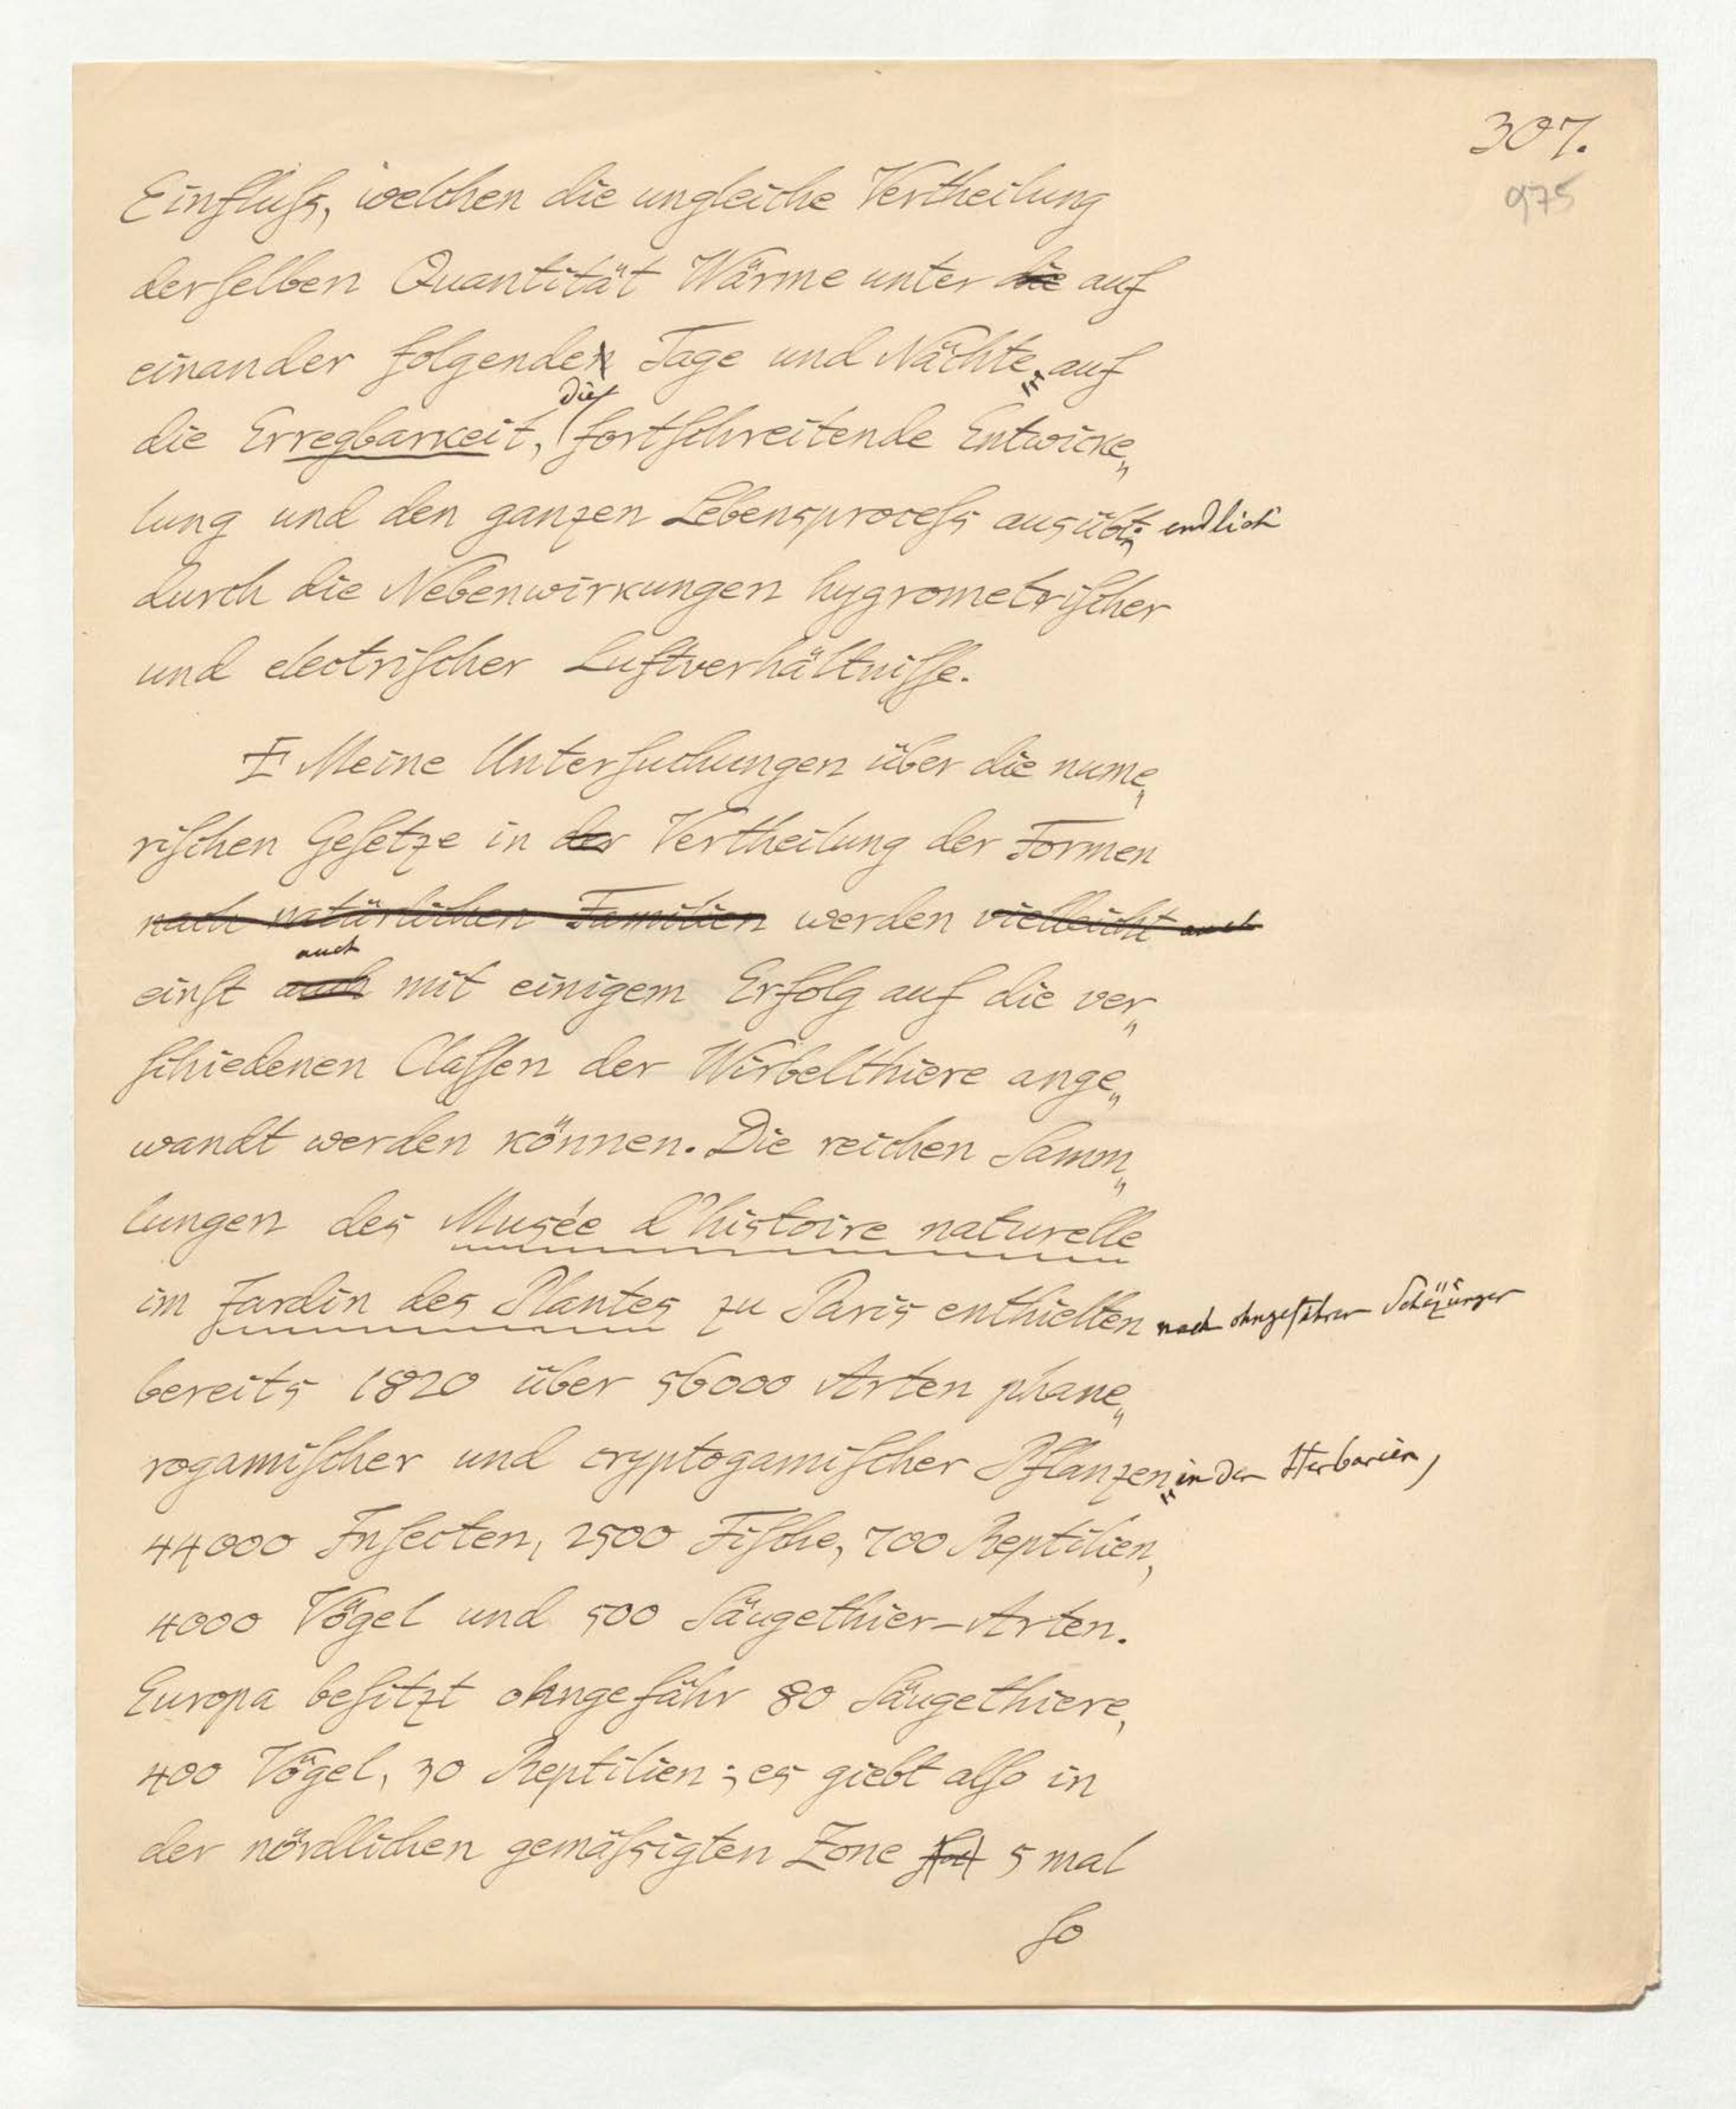 307.
975
Einfluſs, welchen die ungleiche Vertheilung
derſelben Quantität Wärme unter die auf
einander folgenden Tage und Nächte, auf
die
die Erregbarkeit, fortſchreitende Entwicke„
lung und den ganzen Lebensproceſs ausübt; endlich
durch die Nebenwirkungen hygrometriſcher
und electriſcher Luftverhältniſſe.
Meine Unterſuchungen über die nume„
riſchen Geſetze in der Vertheilung der Formen
nach natürlichen Familien werden vielleicht auch
auch
einſt auch mit einigem Erfolg auf die ver„
ſchiedenen Claſſen der Wirbelthiere ange„
wandt werden können. Die reichen Samm„
lungen des Musée d'histoire naturelle
im Jardin des Plantes zu Paris enthielten nach ohngefährer Schäzungen
bereits 1820 über 56000 Arten phane„
rogamiſcher und cryptogamiſcher Pflanzen in den Herbarien,
44000 Inſecten, 2500 Fiſche, 700 Reptilien,
4000 Vögel und 500 Säugethier-Arten.
Europa beſitzt ohngefähr 80 Säugethiere,
400 Vögel, 30 Reptilien; es giebt alſo in
der nördlichen gemäſsigten Zone 5 mal
ſo